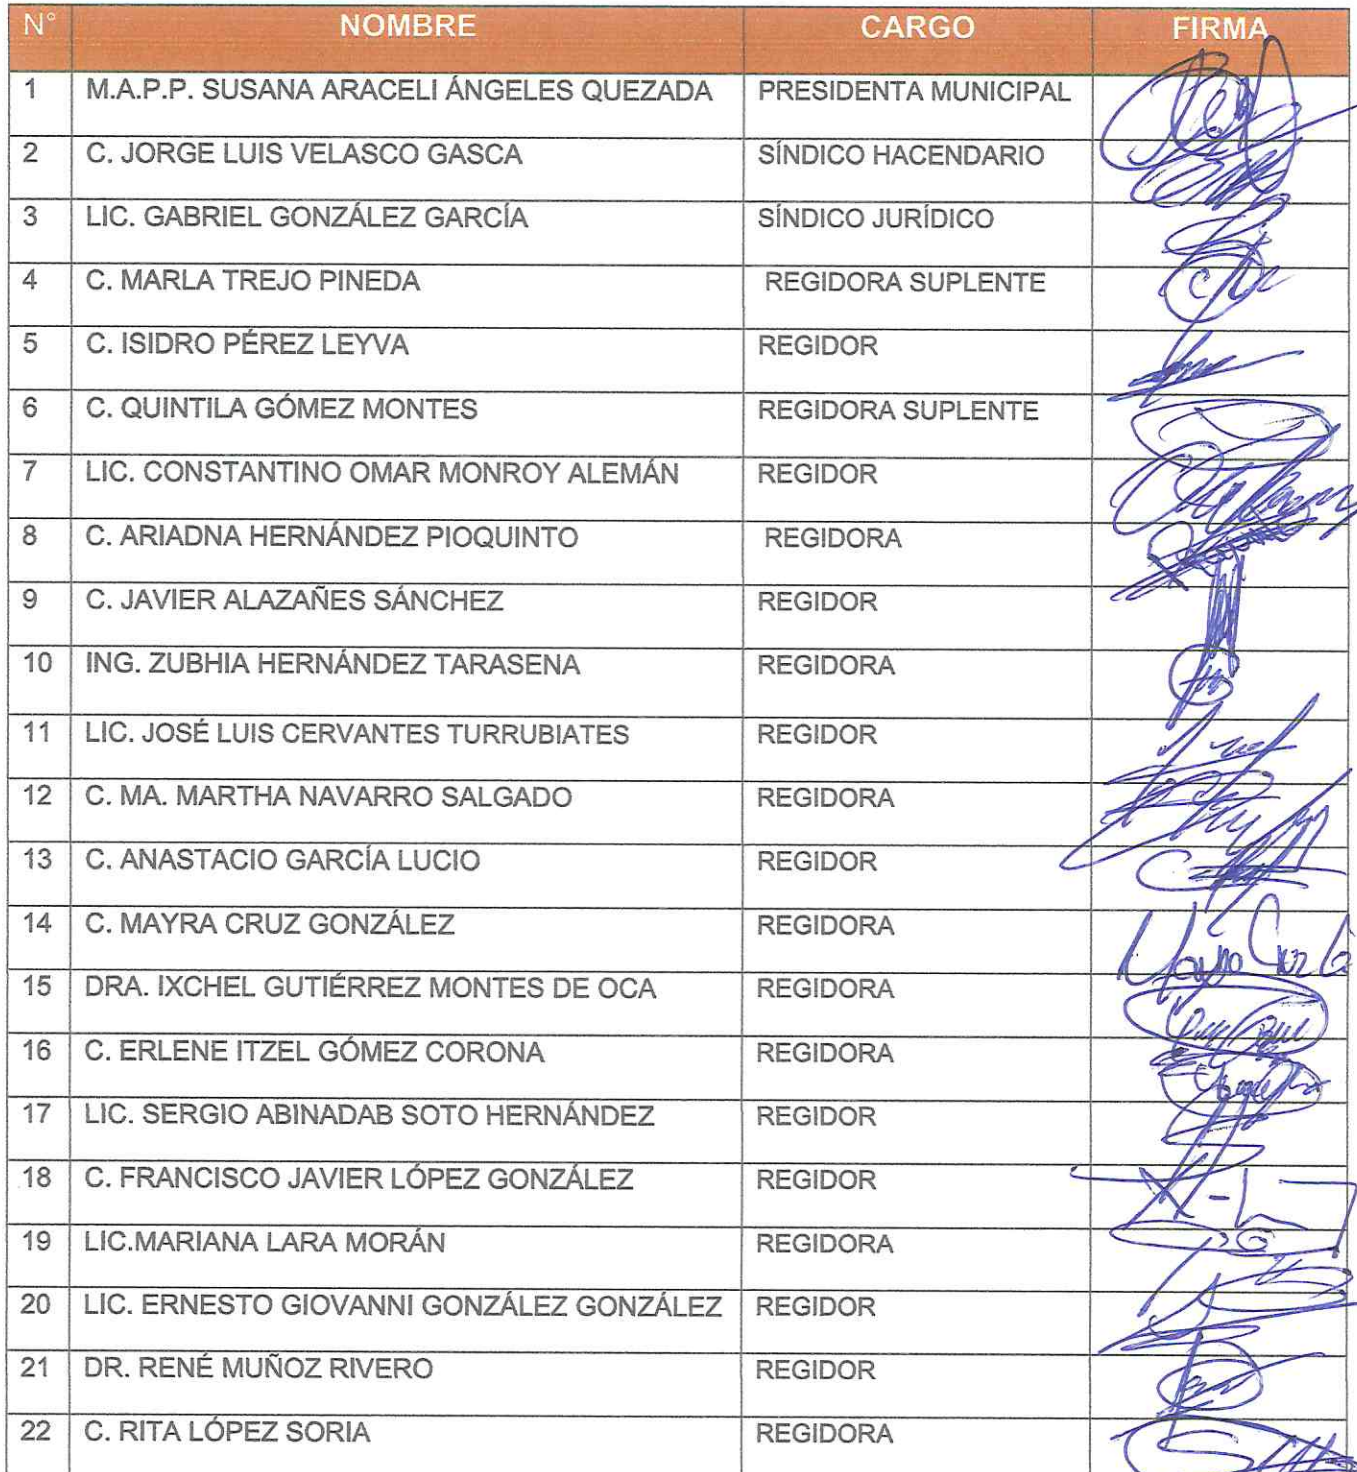 N° NOMBRE CARGO FIRMA
1 M.A.P.P. SUSANA ARACELI ÁNGELES QUEZADA PRESIDENTA MUNICIPAL
2 C. JORGE LUIS VELASCO GASCA SÍNDICO HACENDARIO
3 LIC. GABRIEL GONZÁLEZ GARCÍA SÍNDICO JURÍDICO
4 C. MARLA TREJO PINEDA REGIDORA SUPLENTE
5 C. ISIDRO PÉREZ LEYVA REGIDOR
6 C. QUINTILA GÓMEZ MONTES REGIDORA SUPLENTE
7 LIC. CONSTANTINO OMAR MONROY ALEMÁN REGIDOR
8 C. ARIADNA HERNÁNDEZ PIOQUINTO REGIDORA
9 C. JAVIER ALAZAÑES SÁNCHEZ REGIDOR
10 ING. ZUBHIA HERNÁNDEZ TARASENA REGIDORA
11 LIC. JOSÉ LUIS CERVANTES TURRUBIATES REGIDOR
12 C. MA. MARTHA NAVARRO SALGADO REGIDORA
13 C. ANASTACIO GARCÍA LUCIO REGIDOR
14 C. MAYRA CRUZ GONZÁLEZ REGIDORA Mayra Cruz G
15 DRA. IXCHEL GUTIÉRREZ MONTES DE OCA REGIDORA
16 C. ERLENE ITZEL GÓMEZ CORONA REGIDORA
17 LIC. SERGIO ABINADAB SOTO HERNÁNDEZ REGIDOR
18 C. FRANCISCO JAVIER LÓPEZ GONZÁLEZ REGIDOR
19 LIC.MARIANA LARA MORÁN REGIDORA
20 LIC. ERNESTO GIOVANNI GONZÁLEZ GONZÁLEZ REGIDOR
21 DR. RENÉ MUÑOZ RIVERO REGIDOR
22 C. RITA LÓPEZ SORIA REGIDORA